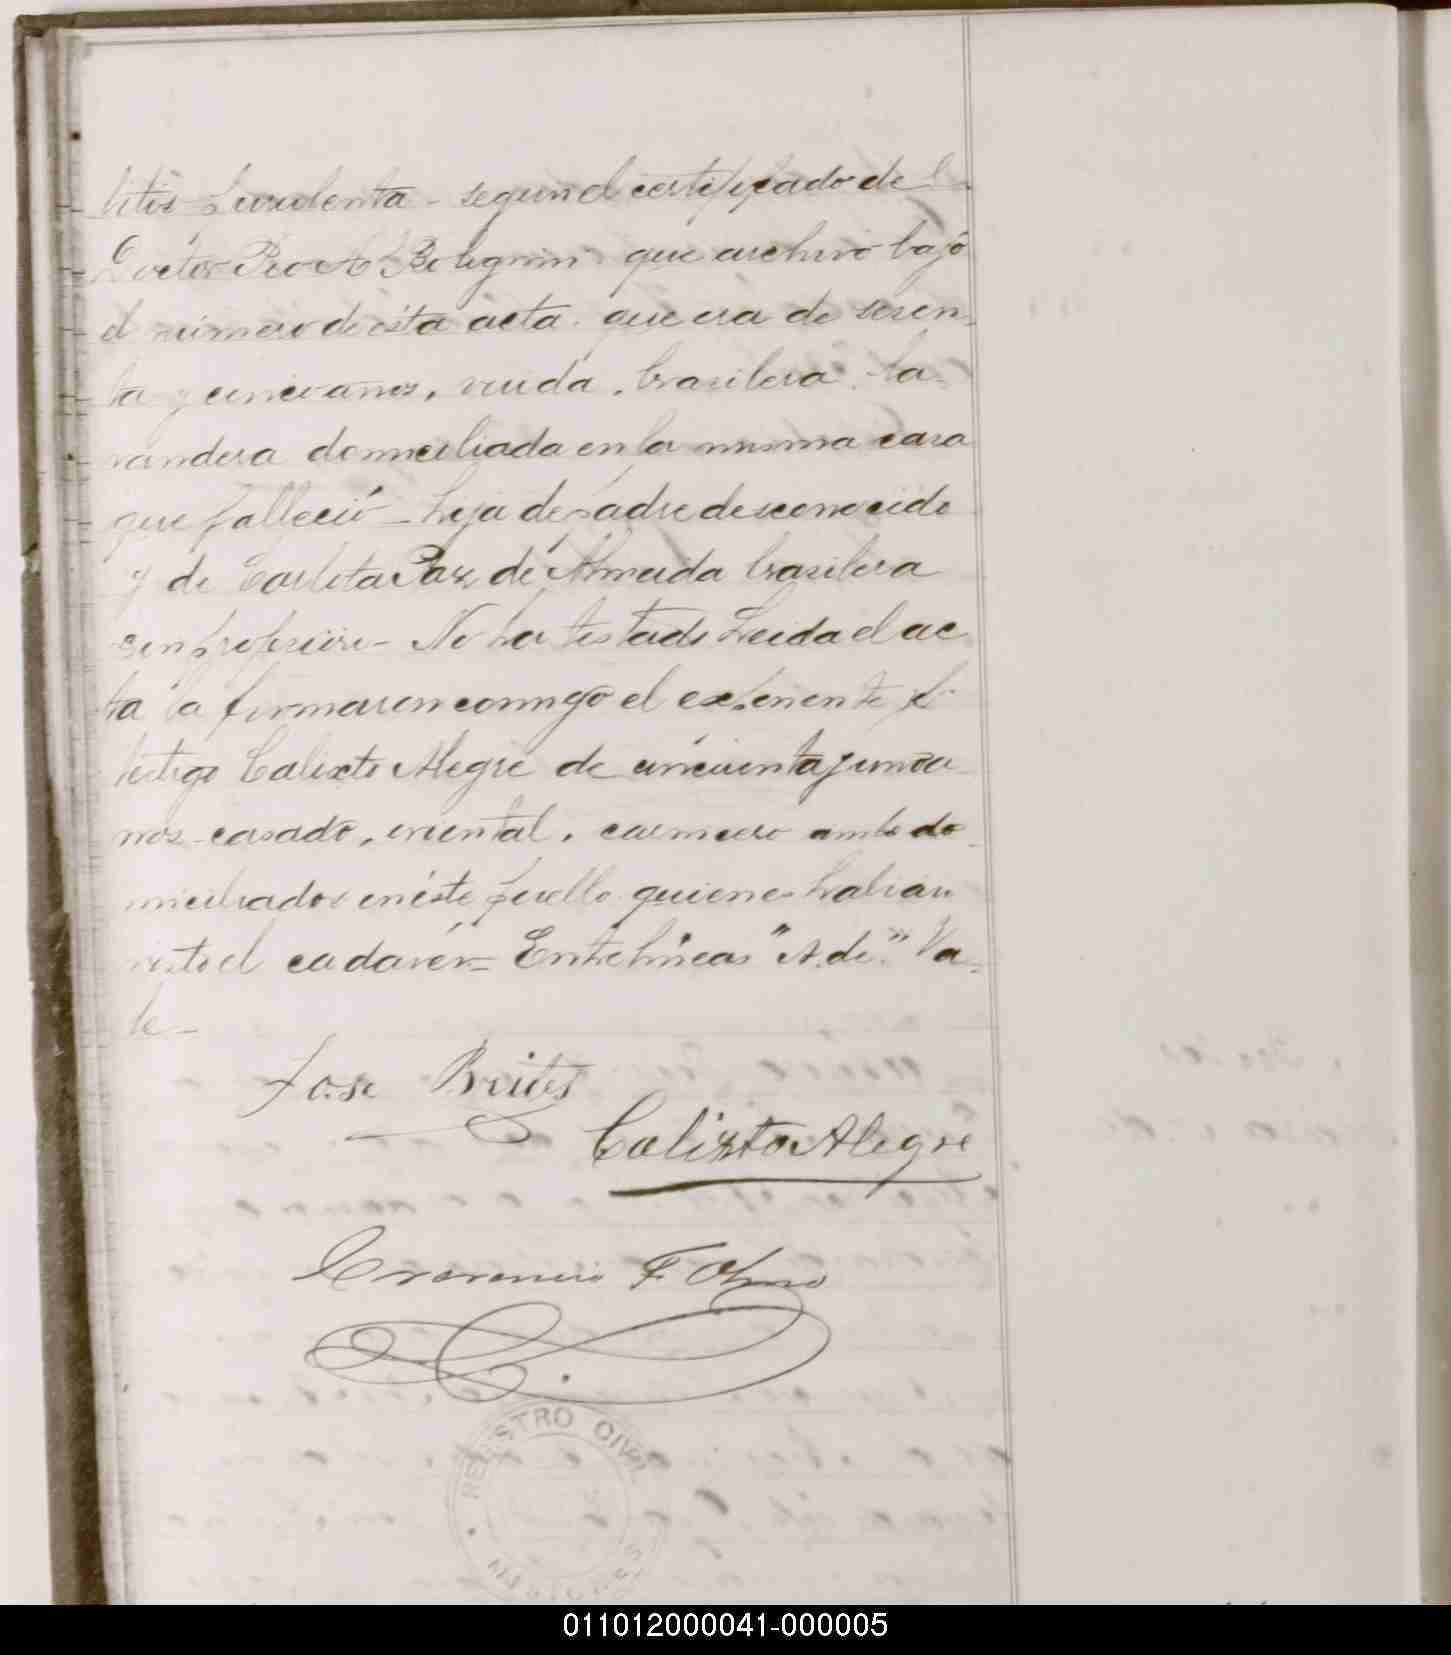 titis purulenta - segun el certificado del
Doctor Pio A. que archivo bajo
el número de ésta acta. que era de sesen-
ta y cinco años, viuda, brasilera, la-
vandera domiciliada en la misma casa
que falleció - hija de padre desconocido
y de Carlota Paz de Almeida brasilera
sin profesión - No ha testado Leida el ac
ta la firmaron conmigo el exponente y el
testigo Calixto Alegre de cincuenta y un a
ños casado, oriental, carnicero ambos do
miciliados en éste pueblo quienes habian
visto el cadavér = Entrelíneas "A. de" Va-
le -
Jose Brites
Calixto Alegre
F. Olmo
REGISTRO CIVIL
MISIONES
011012000041-000005